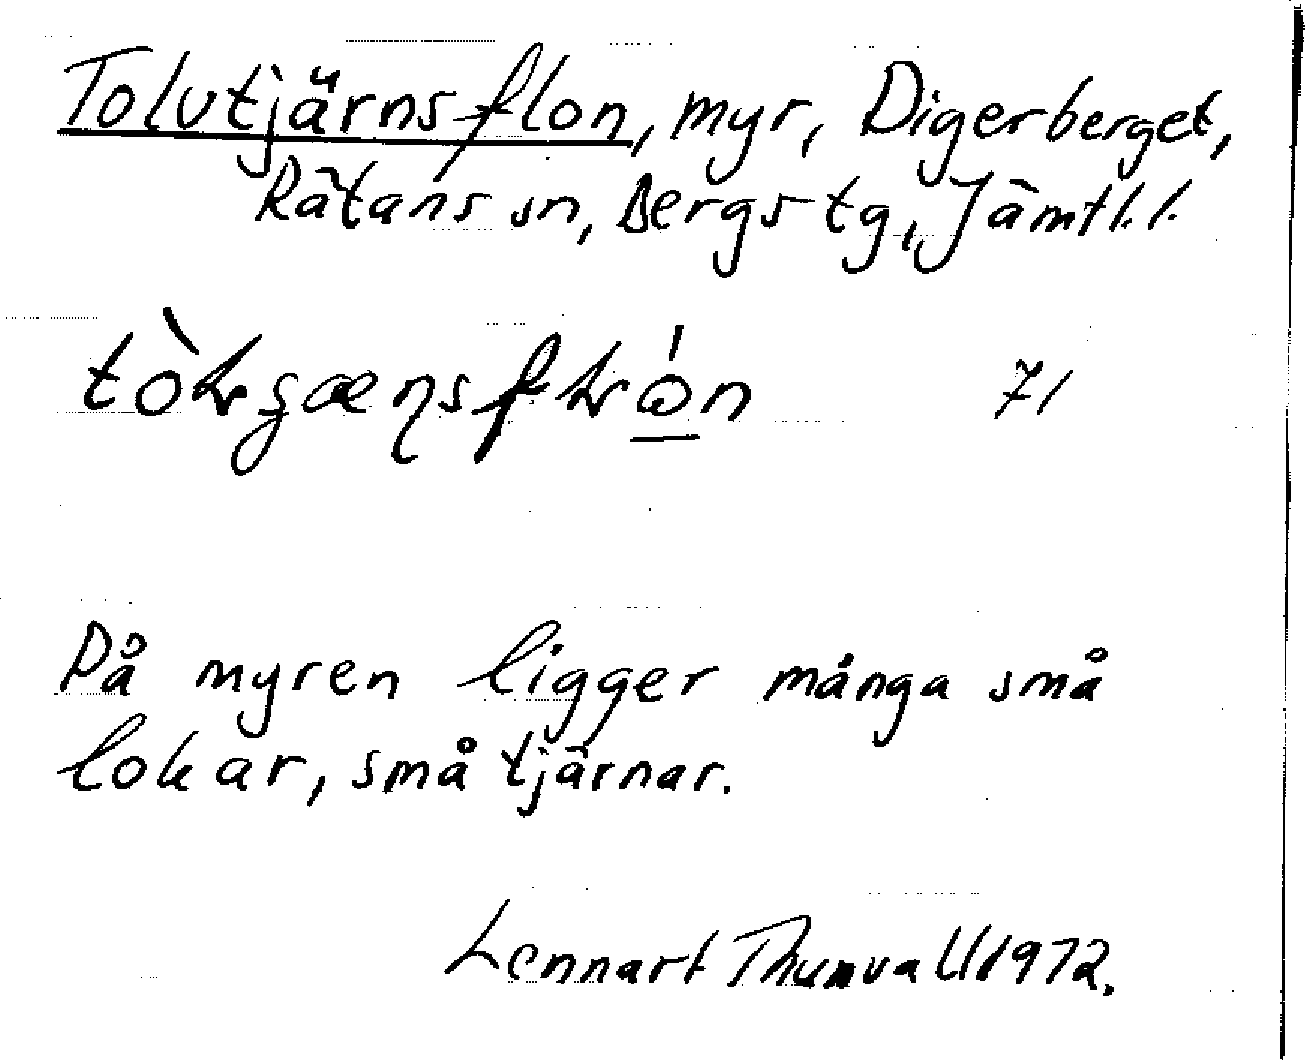 Tolvtjärnsflon, myr, Digerberget,
Rätans sn, Bergs tg, Jämtl. l.
71
På myren ligger många små
lokar, små tjärnar.
Lennart Thunvall 1972.